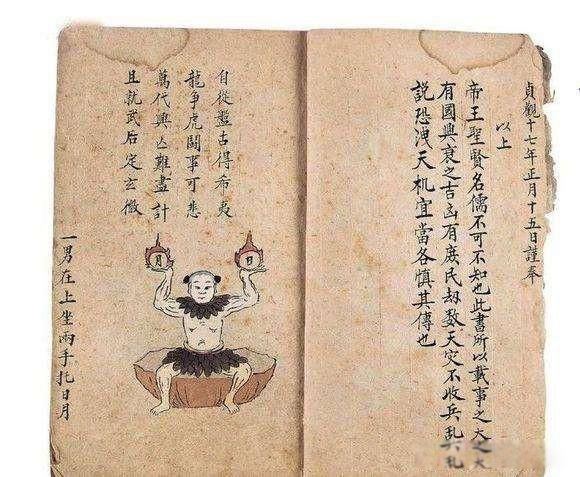 貞觀十七年正月十五日謹奉
以上
帝王聖賢名儒不可不知也此書所以載事之大
有國興衰之吉凶有庶民劫数天灾不收兵乱
説恐洩天机宜當各慎其傳也
自從盤古得希夷
龍争虎鬪事可悲
萬代興亡難盡計
且就武后定玄微
日
月
一男在上坐兩手托日月